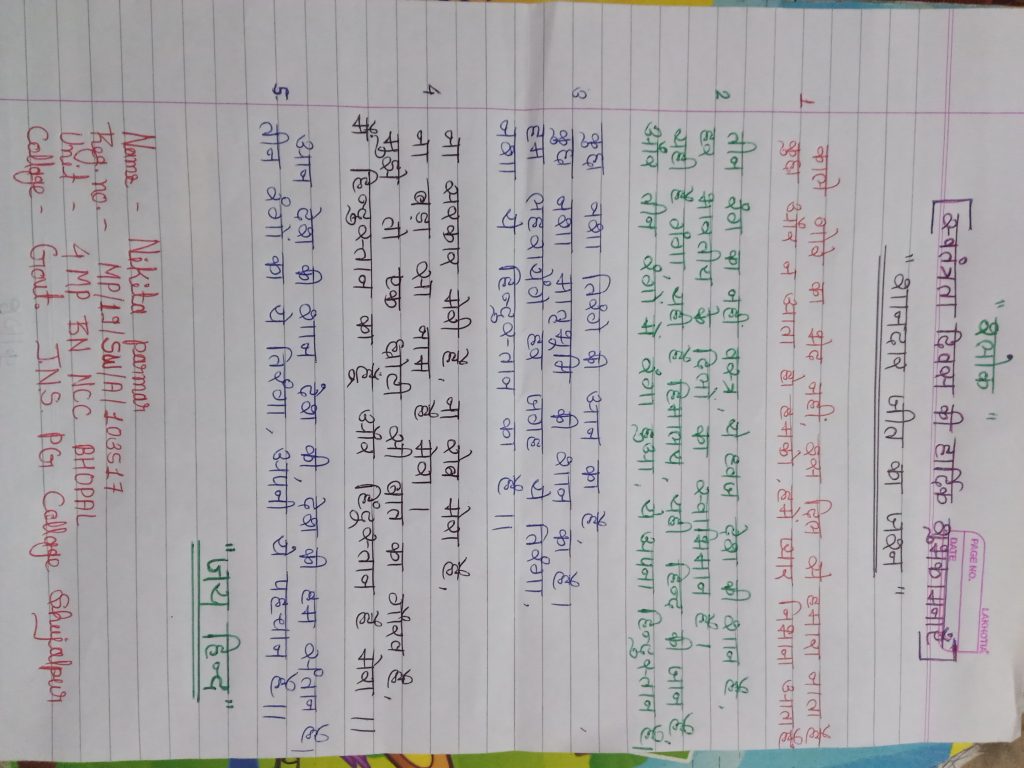 " श्लोक "
[स्वतंत्रता दिवस की हार्दिक शुभकामनाएँ]
PAGE NO.
DATE
LAKHOTIA
" शानदार जीत का जश्न "
1 काले गोरे का भेद नहीं, हर दिल से हमारा नाता है
कुछ और न आता हो हमको, हमें प्यार निभाना आता है
2 तीन रंग का नहीं वस्त्र, ये ध्वज देश की शान है,
हर भारतीय के दिलो का स्वाभिमान है।
यही है गंगा, यही है हिमालय, यही हिन्द की जान है,
और तीन रंगों में रंगा हुआ, ये अपना हिन्दुस्तान है।
3 कुछ नशा तिरंगे की आन का है,
कुछ नशा मातृभूमि की शान का है।
हम लहराएंगे हर जगह ये तिरंगा,
नशा ये हिन्दुस्तान का है।।
4 ना सरकार मेरी है, ना रौब मेरा है,
ना बड़ा सा नाम है मेरा।
मुझे तो एक छोटी सी बात का गौरव है,
मैं हिन्दुस्तान का हूँ और हिंदुस्तान है मेरा।।
5 आन देश की शान देश की, देश की हम संतान है।
तीन रंगो का ये तिरंगा, अपनी ये पहचान है।।
"जय हिन्द"
Name - Nikita parmar
Reg. no. - MP/19/SW/A/103517
Unit - 4 MP BN NCC BHOPAL
Callege - Govt. JNS PG Callege Shujalpur